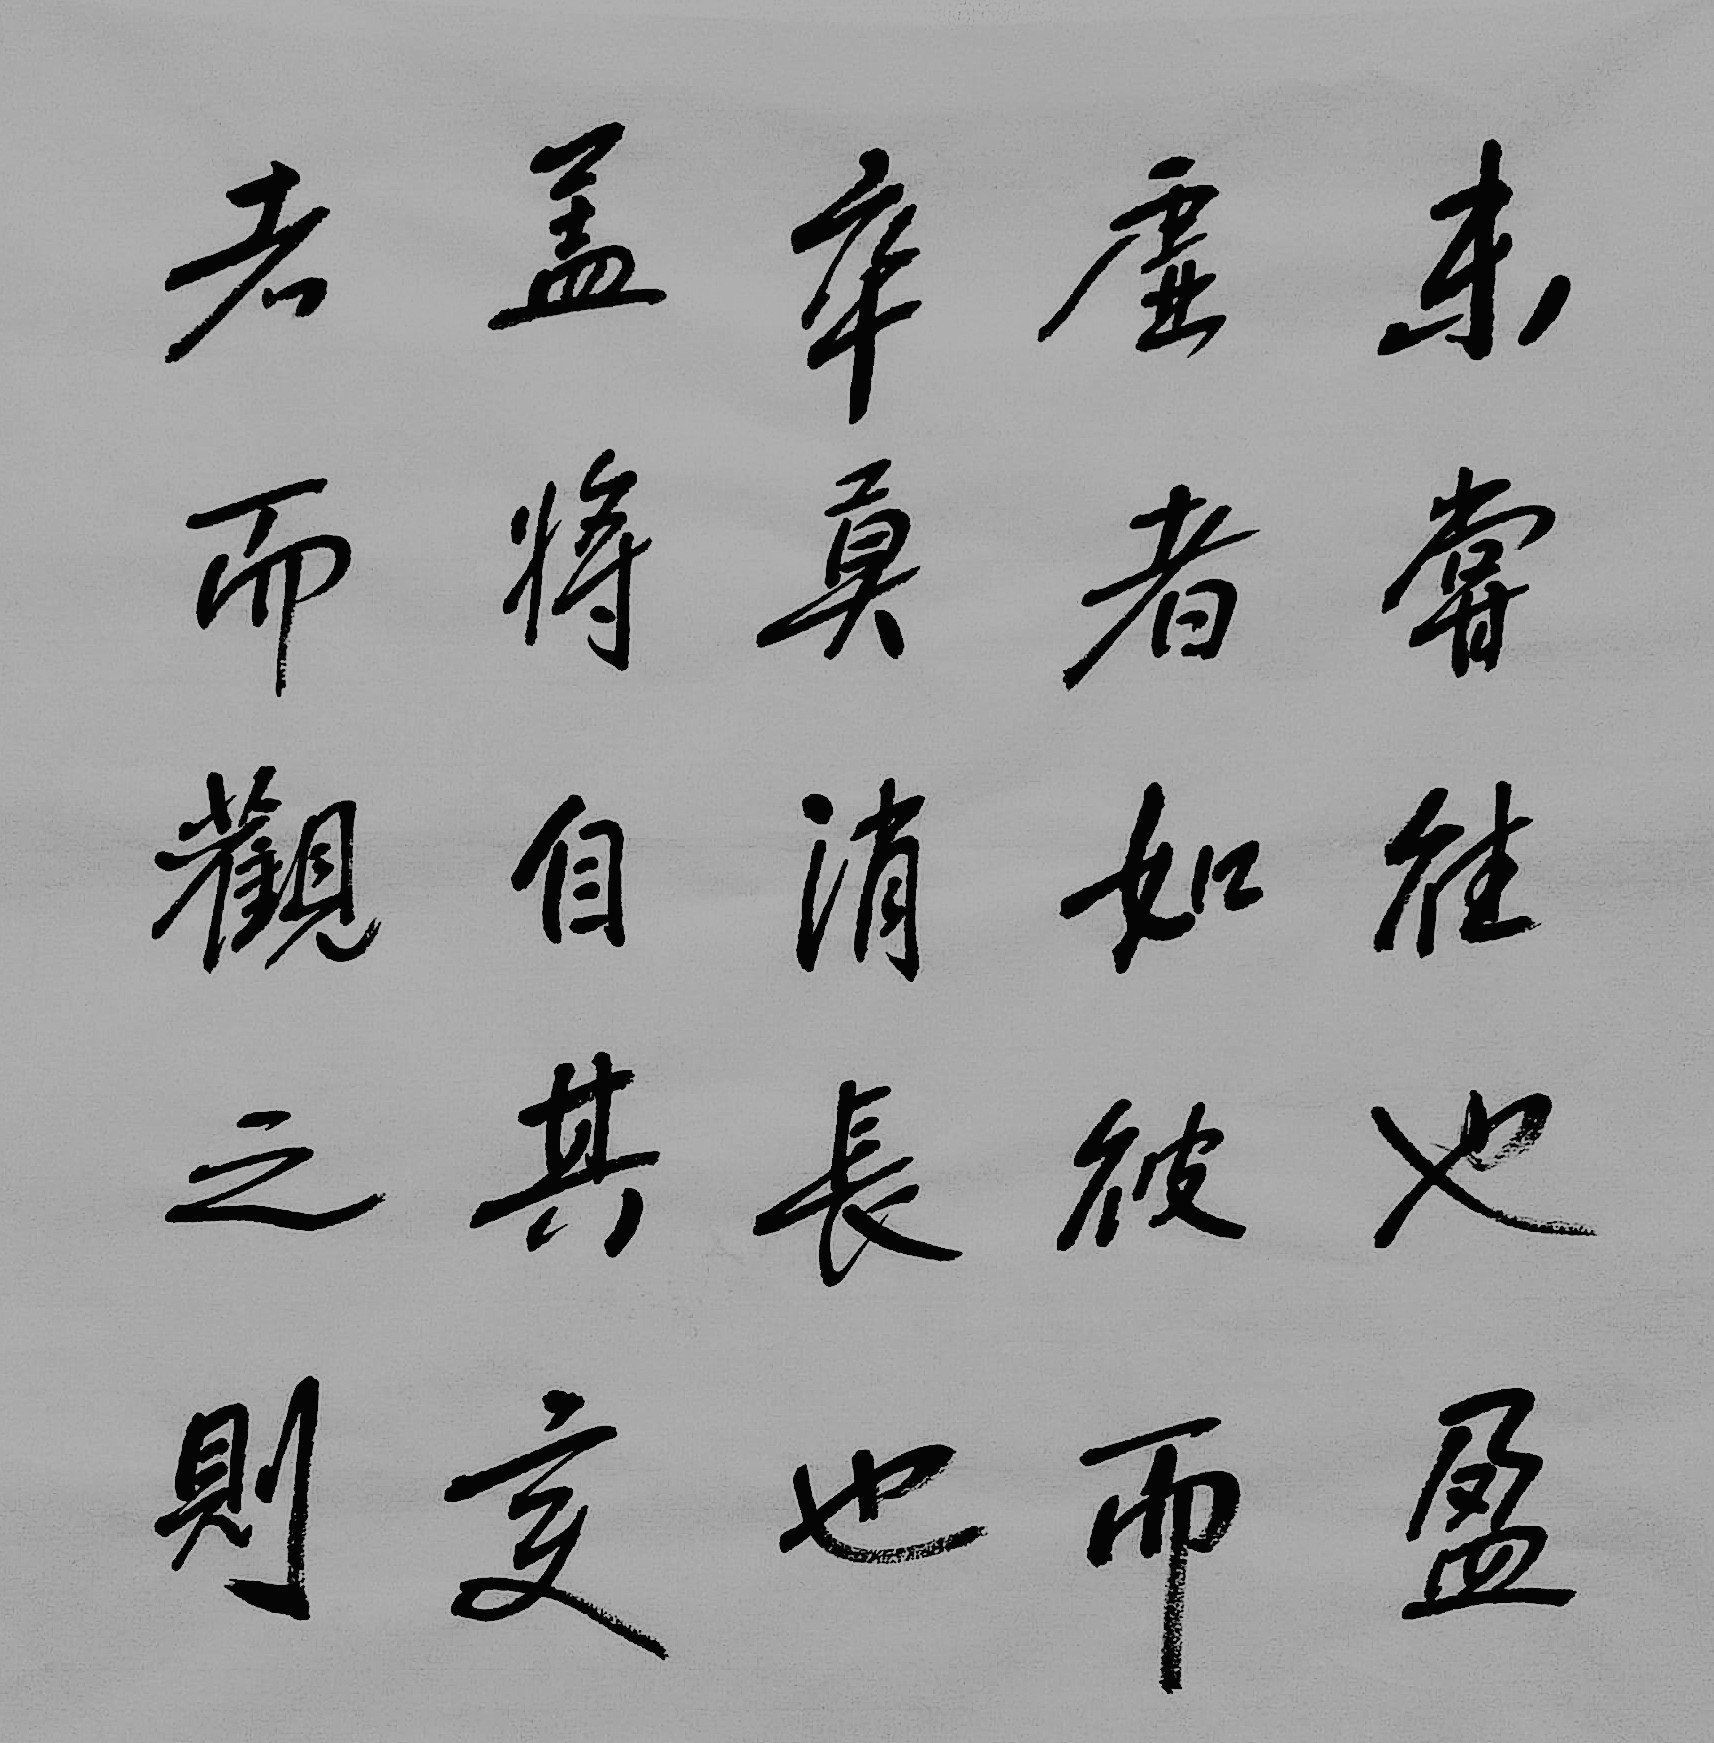 未嘗往也盈
虚者如彼而
卒莫消長也
盖將自其变
者而觀之則